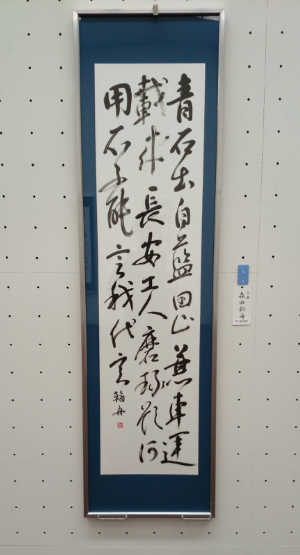 青石出自藍田山兼車運
載来長安工人磨琢欲何
用石不能言我代言
翰舟